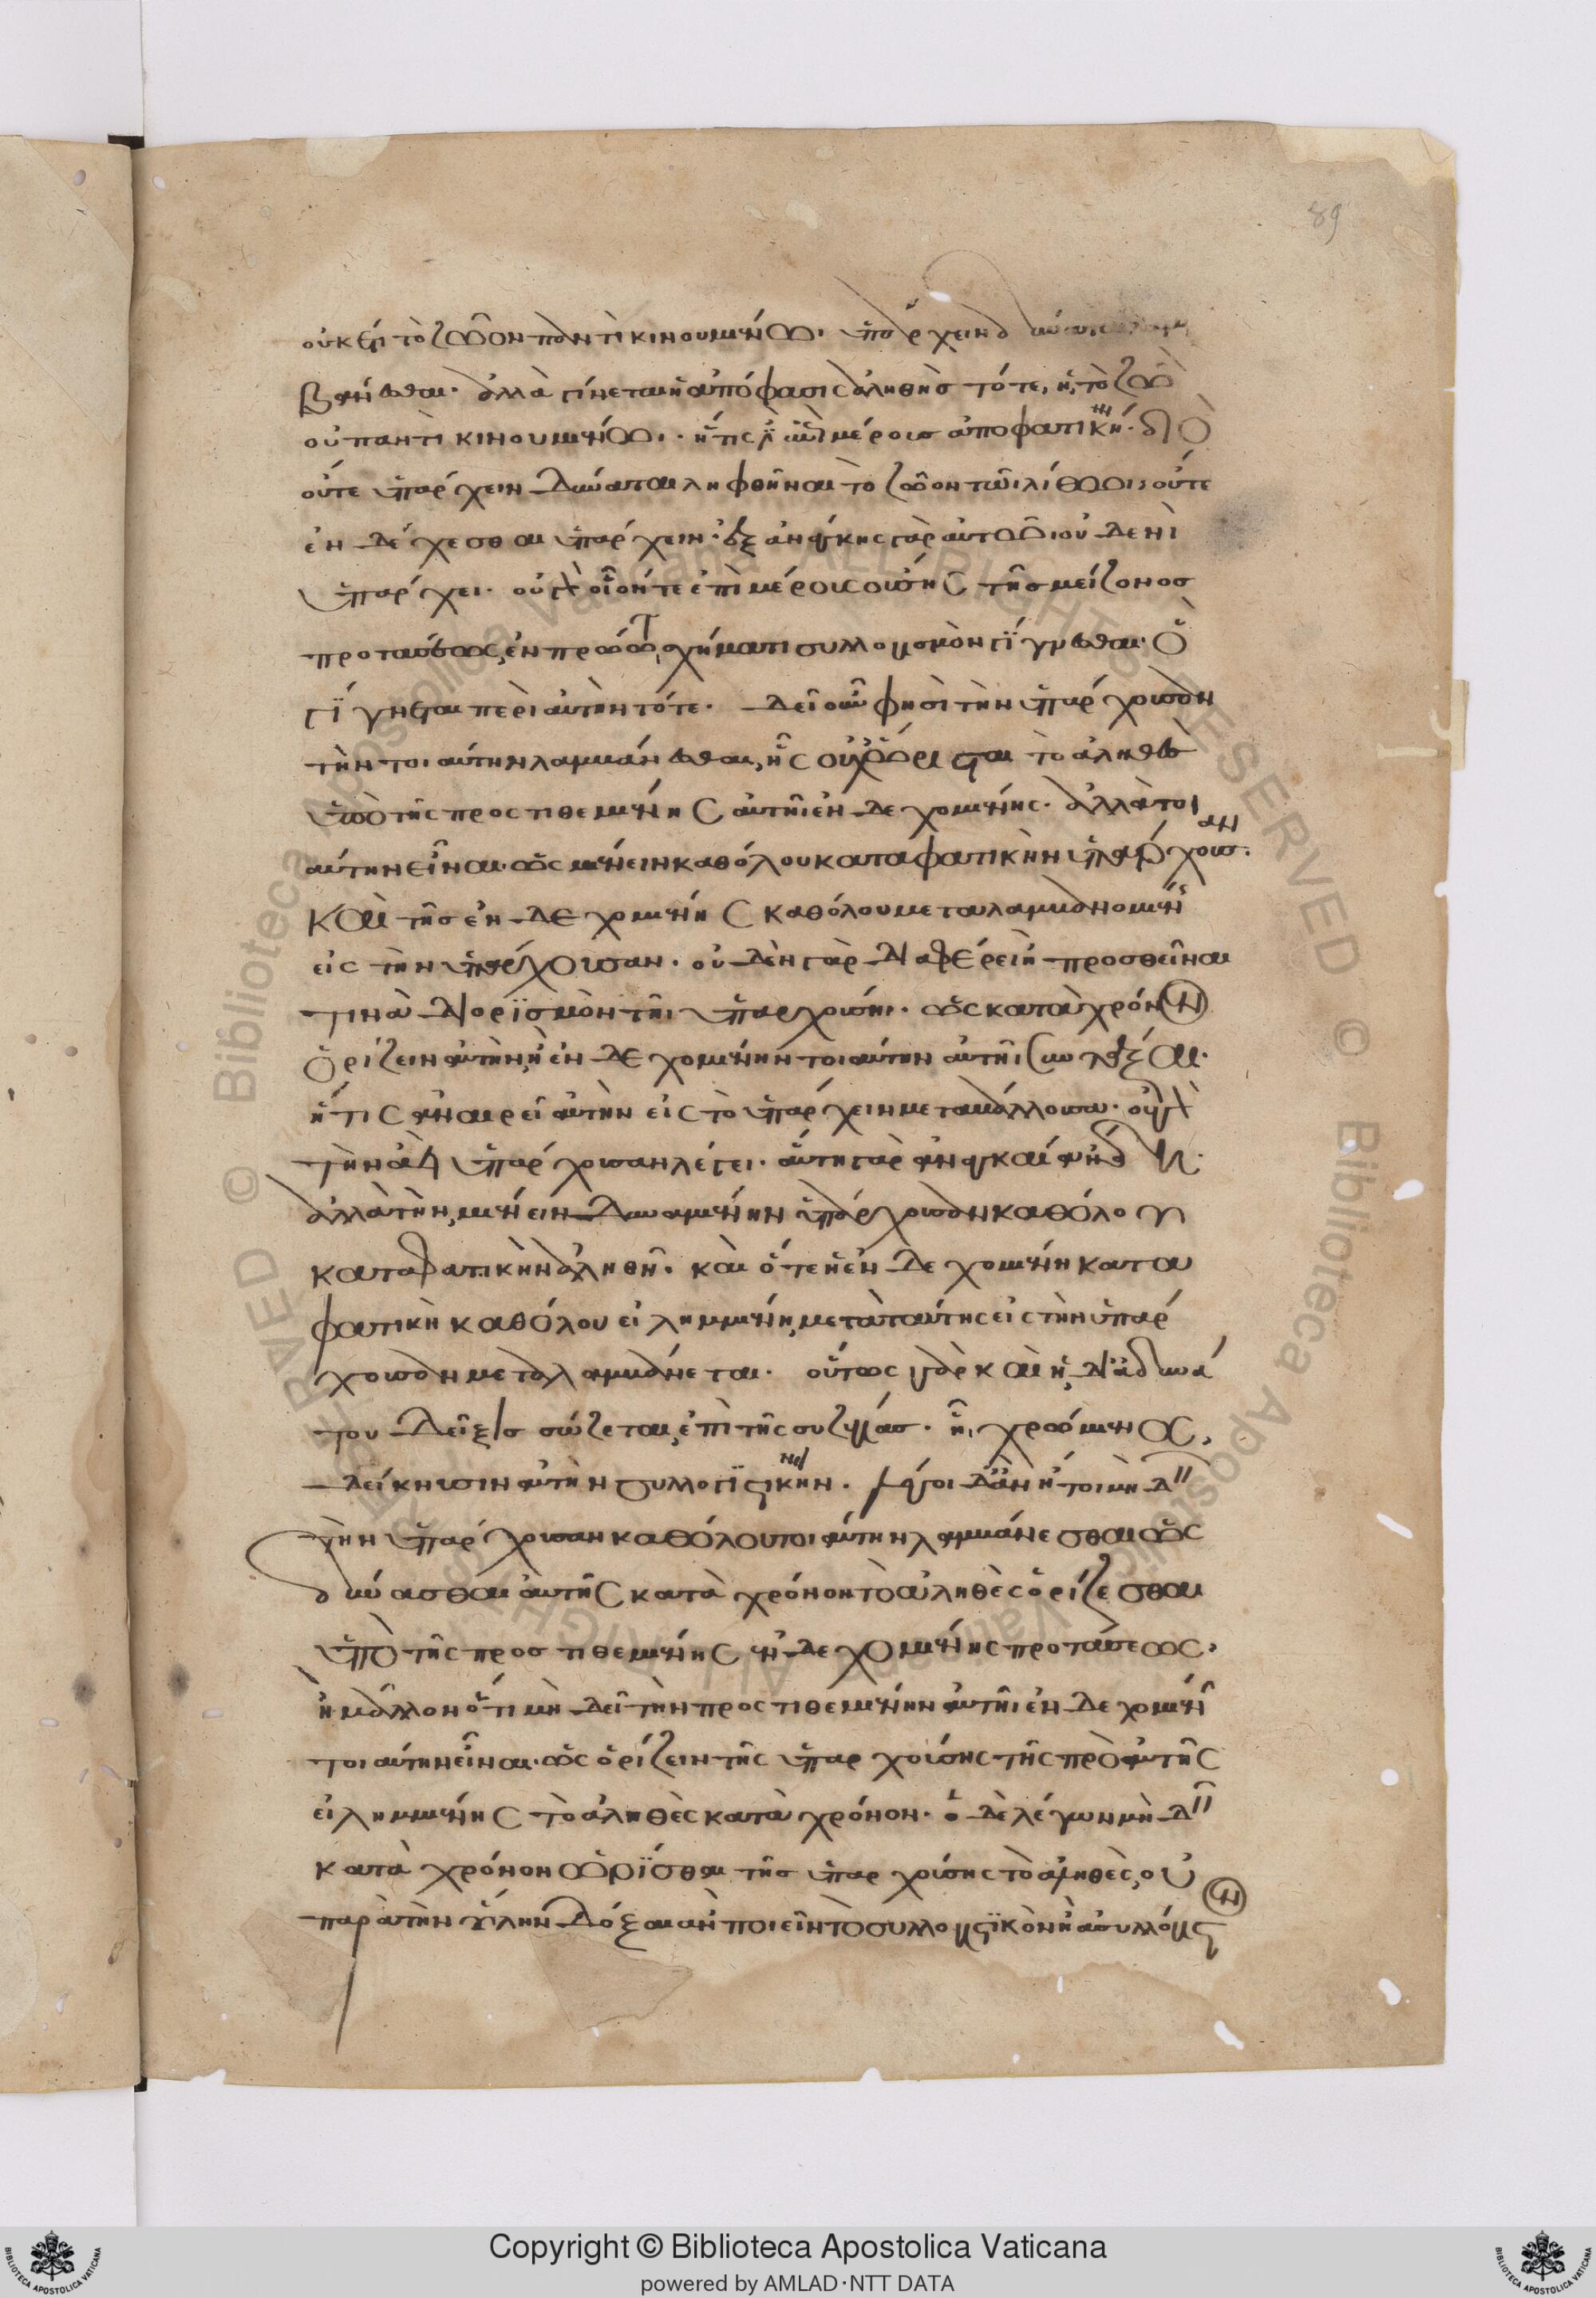 89
οὐκέτι τὸ ζῶον παντὶ κινουμένωι ὑπάρχειν δύναται λαμ
βάνεσθαι· ἀλλὰ γίνεται ἡ ἀπόφασις ἀληθὴς τότε, ἡ, τὸ ζῶον
οὐ παντὶ κινουμένωι· ἥτις ἐστὶν ἐπὶ μέρους ἀποφατική· διὸ
οὔτε ὑπάρχειν δύναται ληφθῆναι τὸ ζῶον τῶι λίθωι, οὔτε
ἐνδέχεσθαι ὑπάρχειν· ἐξ ἀνάγκης γὰρ αὐτῶι οὐδενὶ
ὑπάρχει. οὐ γὰρ οἷόν τε ἐπὶ μέρους οὔσης τῆς μείζονος
προτάσεως, ἐν πρώτωι σχήματι συλλογισμὸν γίγνεσθαι· ὃ
γίγνεται περὶ αὐτὴν τότε. δεῖ οὖν φησὶ τὴν ὑπάρχουσαν
τὴν τοιαύτην λαμβάνεσθαι, ἧς οὐχ ὁρίζεται τὸ ἀληθὲς
ὑπὸ τῆς προστιθεμένης αὐτῆι ἐνδεχομένης· ἀλλὰ τοι
αύτην εἶναι· ὡς μένειν καθόλου καταφατικὴν ὑπάρχουσαν
καὶ τῆς ἐνδεχομένης καθόλου μεταλαμβανομένης
εἰς τὴν ὑπάρχουσαν. οὐδὲν γὰρ διαφέρειν προσθεῖναι
τινὰ διορισμὸν τῆι ὑπαρχούσηι· ὡς κατὰ χρόνον
ὁρίζειν αὐτὴν, ἢ ἐνδεχομένην τοιαύτην αὐτῆι συντάξαι·
ἥτις ἀναιρεῖ αὐτὴν εἰς τὸ ὑπάρχειν μεταβάλλουσα· οὐ γὰρ
τὴν ἀεὶ ὑπάρχουσαν λέγει· αὕτη γὰρ ἀναγκαία ἤδη·
ἀλλὰ τὴν, μένειν δυναμένην ὑπάρχουσαν καθόλου
καταφατικὴν ἀληθῆ· καὶ ὅτε ἡ ἐνδεχομένη κατα
φατικὴ καθόλου εἰλημμένη, μετὰ ταύτης εἰς τὴν ὑπάρ
χουσαν μεταλαμβάνεται. οὕτως γὰρ καὶ ἡ, δι' ἀδυνά
του δεῖξις σώζεται, ἐπὶ τῆς συζυγίας· ἧι, χρώμενος,
δείκνυσιν αὐτὴν συλλογιστικήν· λέγοι δ' ἂν ἤτοι μὴ δεῖν
τὴν ὑπάρχουσαν καθόλου τοιαύτην λαμβάνεσθαι ὡς
δύνασθαι αὐτῆς κατὰ χρόνον τὸ ἀληθὲς ὁρίζεσθαι
ὑπὸ τῆς προστιθεμένης ἐνδεχομένης προτάσεως,
ἢ μᾶλλον ὅτι μὴ δεῖ τὴν προστιθεμένην αὐτῆι ἐνδεχομένην
τοιαύτην εἶναι· ὡς ὁρίζειν τῆς ὑπαρχούσης τῆς πρὸ αὐτῆς
εἰλημμένης τὸ ἀληθὲς κατὰ χρόνον· ὁ δὲ λέγων μὴ δεῖν
κατὰ χρόνον ὡρίσθαι τῆς ὑπαρχούσης τὸ ἀληθὲς, οὐ
παρὰ τὴν ὕλην δόξαι ἂν ποιεῖν τὸ συλλογιστικὸν ἢ ἀσυλλόγιστον
Copyright © Biblioteca Apostolica Vaticana
powered by AMLAD·NTT DATA